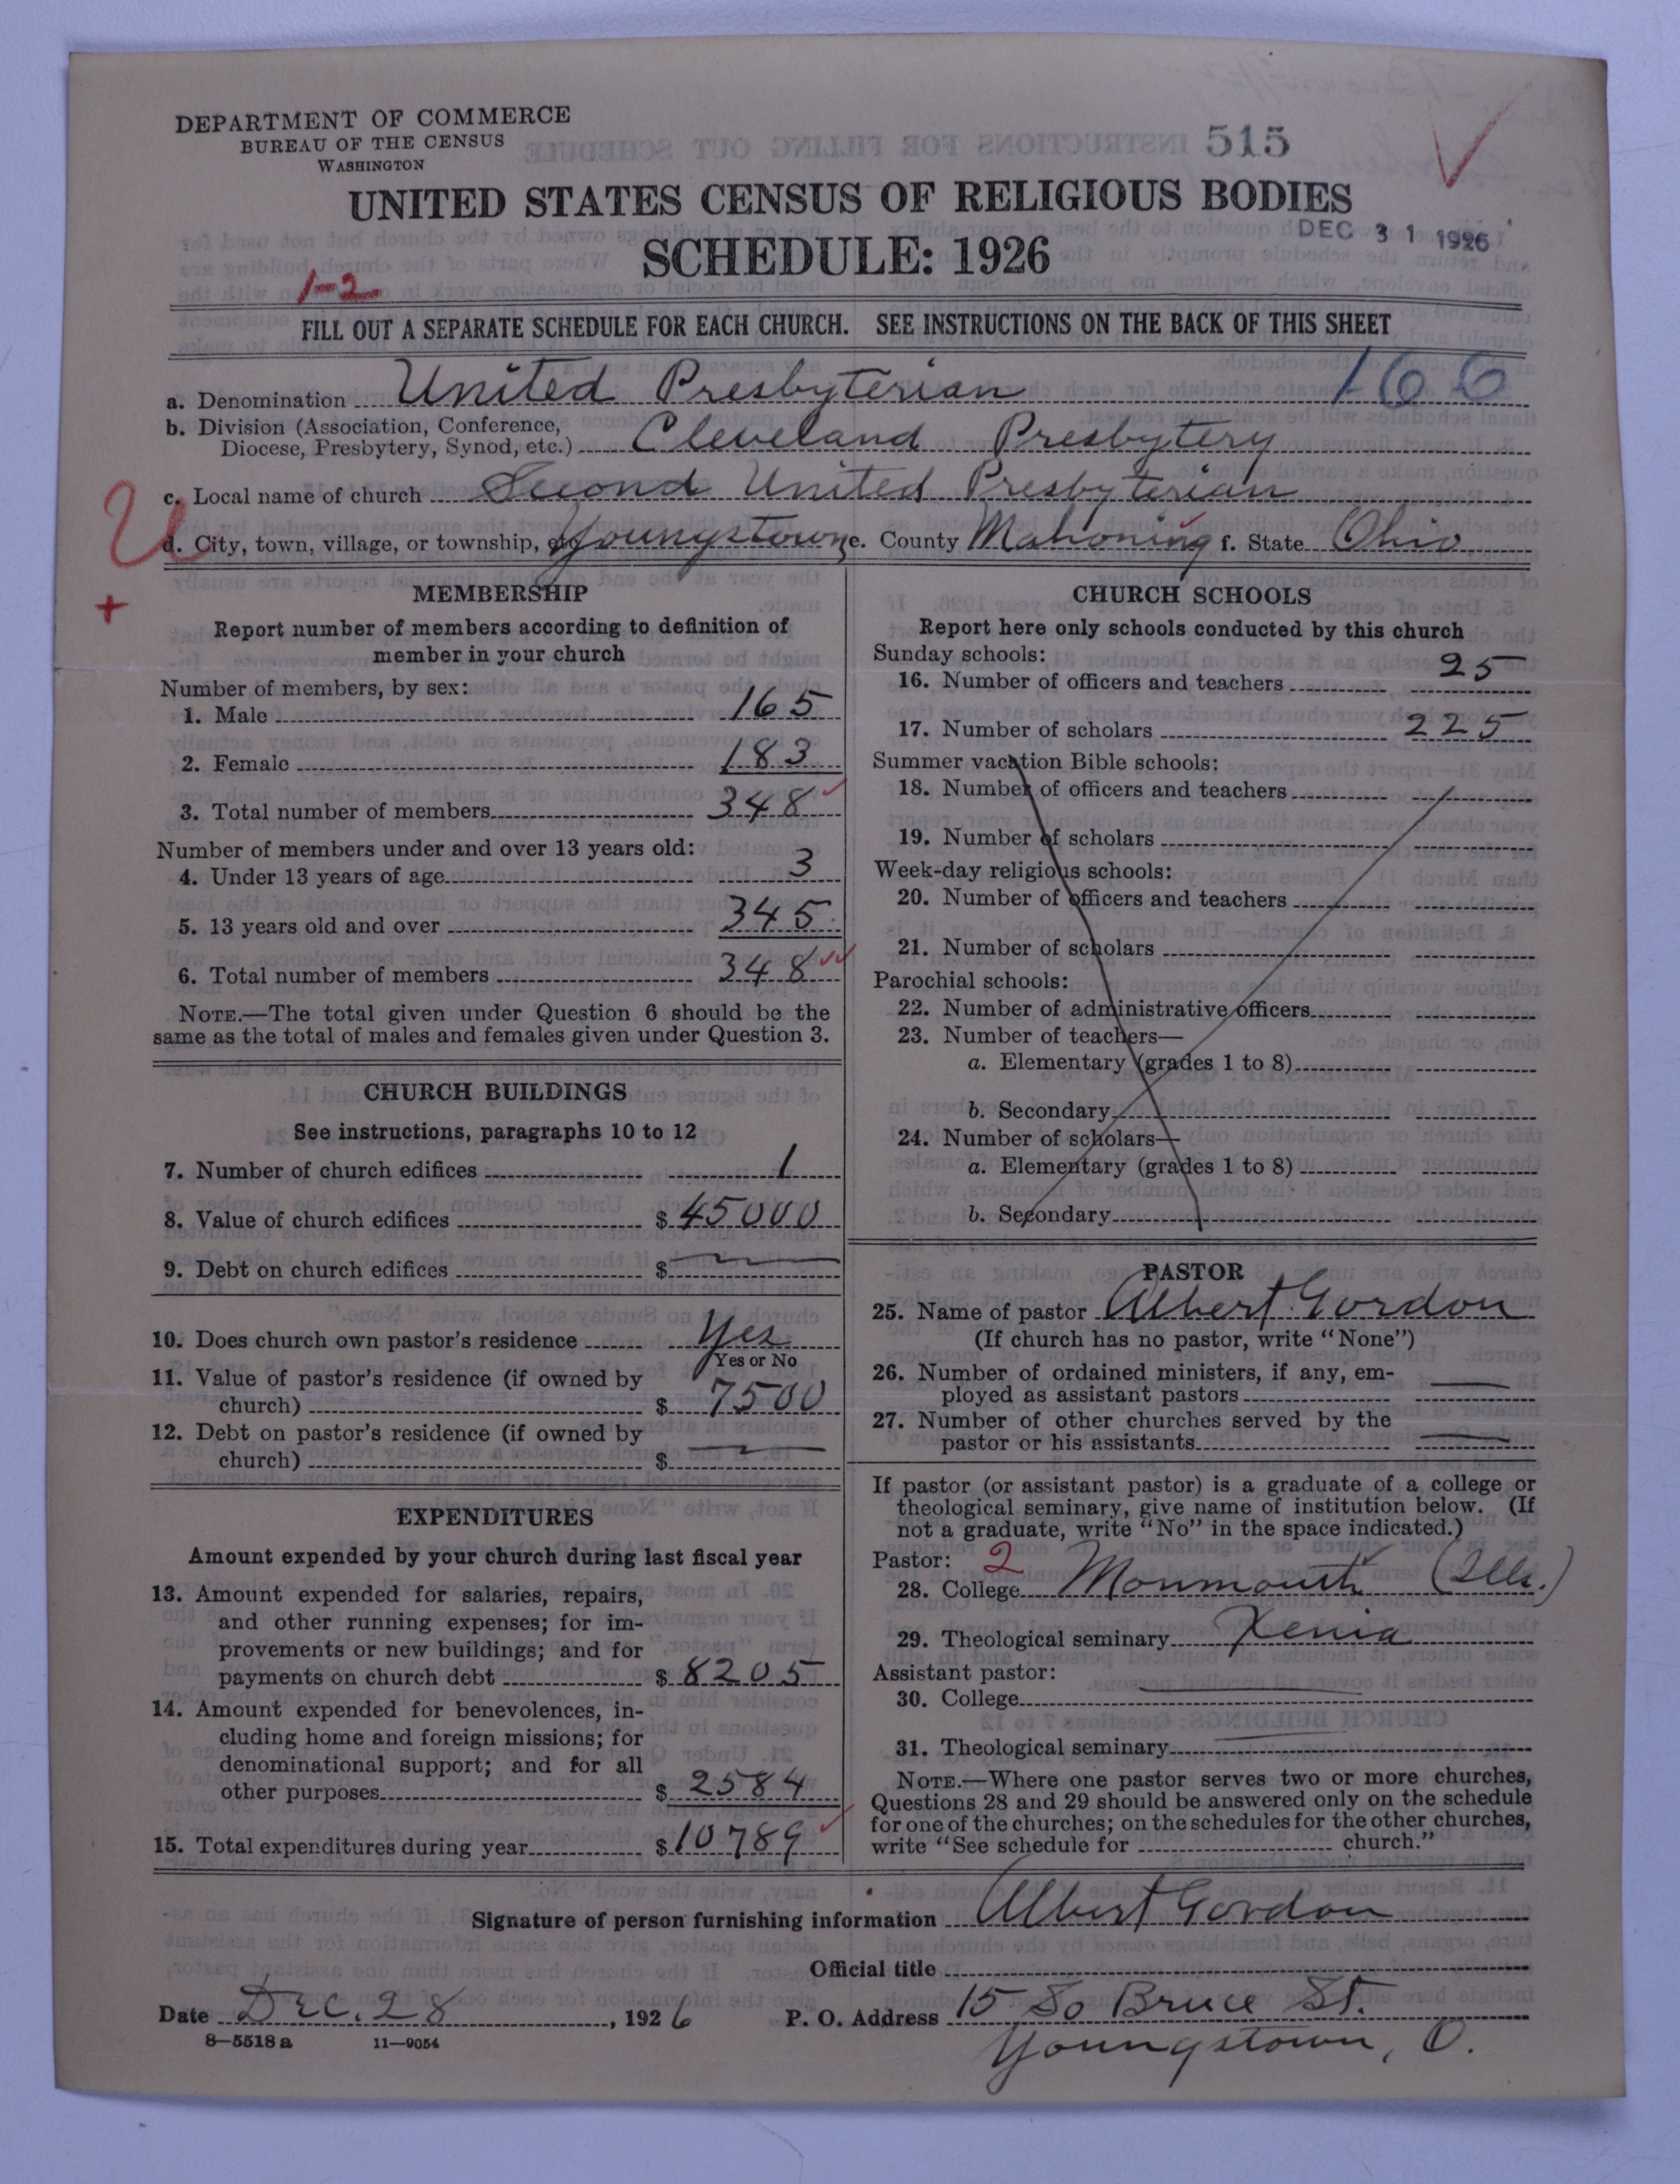 DEPARTMENT OF COMMERCE
BUREAU OF THE CENSUS
WASHINGTON
515
UNITED STATES CENSUS OF RELIGIOUS BODIES
DEC 31 1926
SCHEDULE: 1926
1-2
FILL OUT A SEPARATE SCHEDULE FOR EACH CHURCH. SEE INSTRUCTIONS ON THE BACK OF THIS SHEET
a. Denomination United Presbyterian 166
b. Division (Association, Conference,
Diocese, Presbytery, Synod, etc.) Cleveland Presbytery
c. Local name of church Second United Presbyterian
U
d. City, town, village, or township, etc Youngstown e. County Mahoning f. State Ohio
+
MEMBERSHIP
Report number of members according to definition of
member in your church
Number of members, by sex:
1. Male 165
2. Female 183
3. Total number of members 348
Number of members under and over 13 years old:
4. Under 13 years of age 3
5. 13 years old and over 345
6. Total number of members 348
NOTE.—The total given under Question 6 should be the
same as the total of males and females given under Question 3.
CHURCH BUILDINGS
See instructions, paragraphs 10 to 12
7. Number of church edifices 1
8. Value of church edifices $ 45000
9. Debt on church edifices $ —
10. Does church own pastor's residence Yes
Yes or No
11. Value of pastor's residence (if owned by
church) $ 7500
12. Debt on pastor's residence (if owned by
church) $ —
EXPENDITURES
Amount expended by your church during last fiscal year
13. Amount expended for salaries, repairs,
and other running expenses; for im-
provements or new buildings; and for
payments on church debt $ 8205
14. Amount expended for benevolences, in-
cluding home and foreign missions; for
denominational support; and for all
other purposes $ 2584
15. Total expenditures during year $ 10789
CHURCH SCHOOLS
Report here only schools conducted by this church
Sunday schools:
16. Number of officers and teachers 25
17. Number of scholars 225
Summer vacation Bible schools:
18. Number of officers and teachers
19. Number of scholars
Week-day religious schools:
20. Number of officers and teachers
21. Number of scholars
Parochial schools:
22. Number of administrative officers
23. Number of teachers—
a. Elementary (grades 1 to 8)
b. Secondary
24. Number of scholars—
a. Elementary (grades 1 to 8)
b. Secondary
PASTOR
25. Name of pastor Albert Gordon
(If church has no pastor, write "None")
26. Number of ordained ministers, if any, em-
ployed as assistant pastors —
27. Number of other churches served by the
pastor or his assistants —
If pastor (or assistant pastor) is a graduate of a college or
theological seminary, give name of institution below. (If
not a graduate, write "No" in the space indicated.)
Pastor: 2
28. College Monmouth (Ills.)
29. Theological seminary Xenia
Assistant pastor:
30. College —
31. Theological seminary —
NOTE.—Where one pastor serves two or more churches,
Questions 28 and 29 should be answered only on the schedule
for one of the churches; on the schedules for the other churches,
write "See schedule for church."
Signature of person furnishing information Albert Gordon
Official title
Date Dec. 28, 1926 P. O. Address 15 So Bruce St.
8—5518a 11—9054 Youngstown, O.